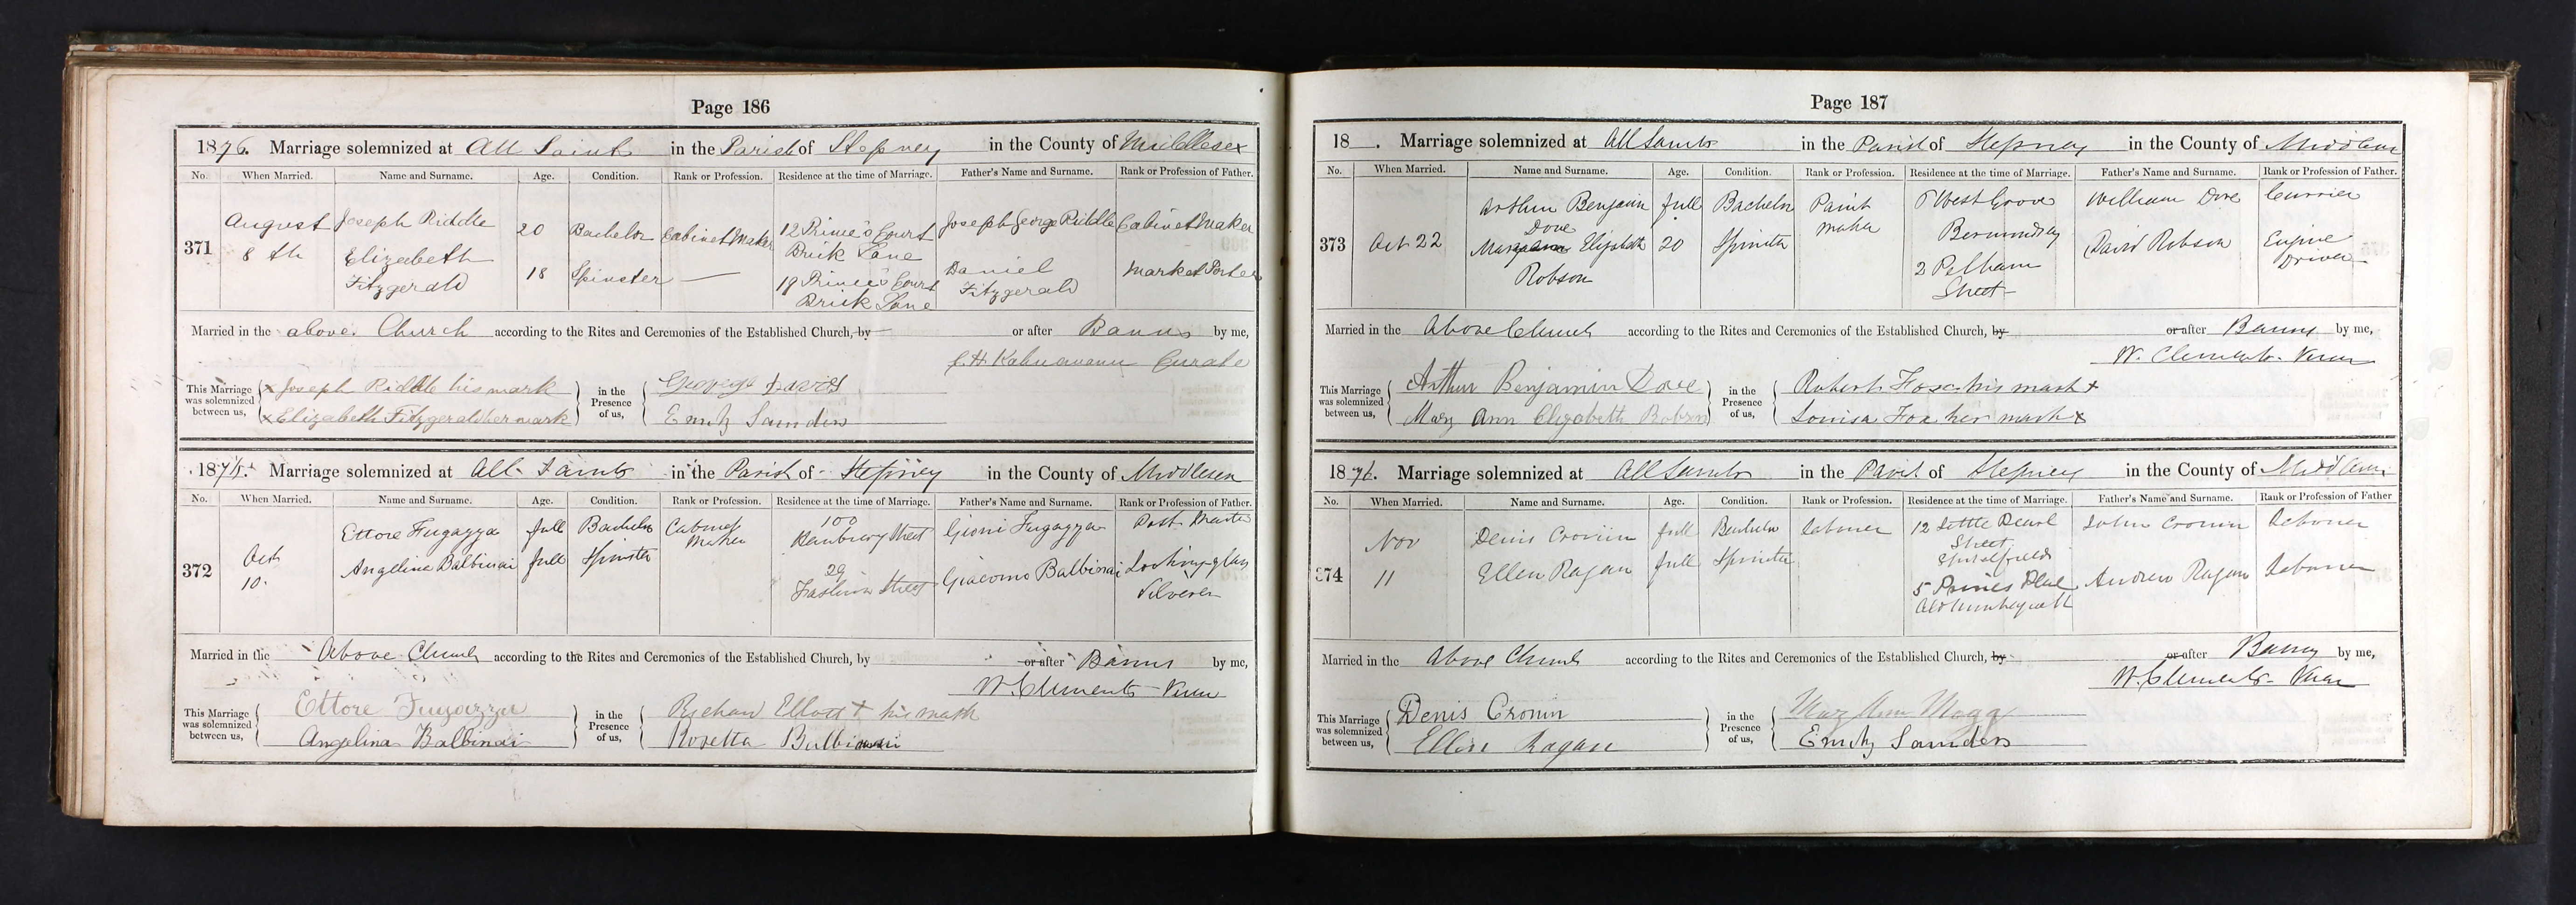 Page 186
1876. Marriage solemnized at All Saints in the Parish of Stepney in the County of Middlesex
No. When Married. Name and Surname. Age. Condition. Rank or Profession. Residence at the time of Marriage. Father's Name and Surname. Rank or Profession of Father.
371
August 8th
Joseph Riddle 20 Bachelor Cabinet Maker 12 Prince's Court Brick Lane Joseph George Riddle Cabinet Maker
Elizabeth Fitzgerald 18 Spinster — 19 Prince's Court Brick Lane Daniel Fitzgerald Market Porter
Married in the above Church according to the Rites and Ceremonies of the Established Church, by or after Banns by me,
Curate
This Marriage was solemnized between us, x Joseph Riddle his mark
x Elizabeth Fitzgerald her mark
in the Presence of us, George Davis
Emily Saunders
187 Marriage solemnized at All Saints in the Parish of Stepney in the County of Middlesex
No. When Married. Name and Surname. Age. Condition. Rank or Profession. Residence at the time of Marriage. Father's Name and Surname. Rank or Profession of Father.
372
Oct 10
Ettore Fugazza full Bachelor Cabinet Maker 100 Hanbury Street Gioni Fugazza Post Master
Angelina Balbinai full Spinster 29 Fashion Street Giacomo Balbinai Looking glass Silverer
Married in the Above Church according to the Rites and Ceremonies of the Established Church, by or after Banns by me,
W. Clements - Vicar
This Marriage was solemnized between us, Ettore Fugazza
Angelina Balbinai
in the Presence of us, Richard Elliott + his mark
Rosetta Balbinai
Page 187
18 . Marriage solemnized at All Saints in the Parish of Stepney in the County of Middlesex
No. When Married. Name and Surname. Age. Condition. Rank or Profession. Residence at the time of Marriage. Father's Name and Surname. Rank or Profession of Father.
373
Oct 22
Arthur Benjamin Dove full Bachelor Paint maker West Grove Bermondsey William Dove Currier
Elizabeth Robson 20 Spinster 2 Pelham Street David Robson Engine Driver
Married in the Above Church according to the Rites and Ceremonies of the Established Church, by or after Banns by me,
W. Clements - Vicar
This Marriage was solemnized between us, Arthur Benjamin Dove
Mary Ann Elizabeth Robson
in the Presence of us, Robert Fox his mark +
Louisa Fox her mark x
1876. Marriage solemnized at All Saints in the Parish of Stepney in the County of Middlesex
No. When Married. Name and Surname. Age. Condition. Rank or Profession. Residence at the time of Marriage. Father's Name and Surname. Rank or Profession of Father
374
Nov 11
Denis Cronin full Bachelor Labourer 12 Little Pearl Street Spitalfields John Cronin Labourer
Ellen Ragan full Spinster 5 Princes Place Andrew Ragan Labourer
Married in the Above Church according to the Rites and Ceremonies of the Established Church, by or after Banns by me,
W. Clements - Vicar
This Marriage was solemnized between us, Denis Cronin
Ellen Ragan
in the Presence of us, Mary Ann Mogg
Emily Saunders